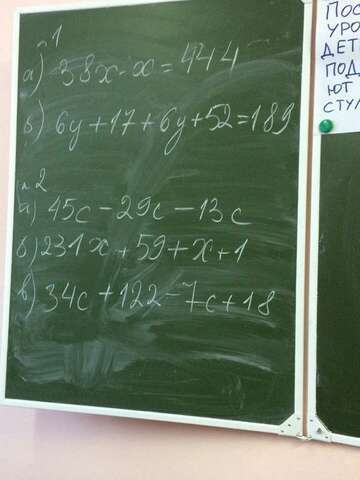 №1
а) 38x-x=444
б) 6y+17+6y+52=189
№2
а) 45c-29c-13c
б) 231x+59+x+1
в) 34c+122-7c+18
Пос
уро
дет
под
ют
сту